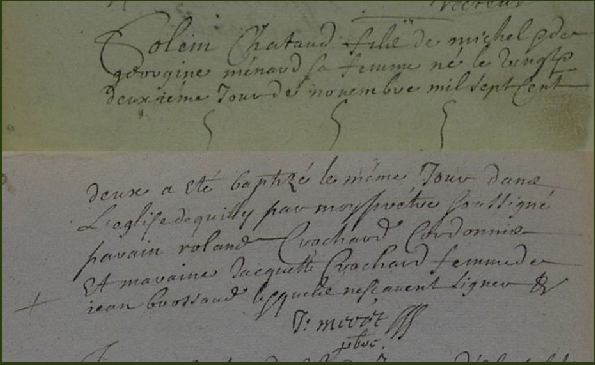 recteur
Colein Chataud filë de michel & de
georgine ménard sa femme ne le vingt
deuxieme Jour de novembre mil sept Cent
deux a eté baptizé le même Jour dans
L'eglise de quilly par moy prétre soussigné
parain roland Crochard Cordonnie
Et maraine Jacquette Crochard femme de
iean brossaud lesquelle ne scavent signer &
ptbre.